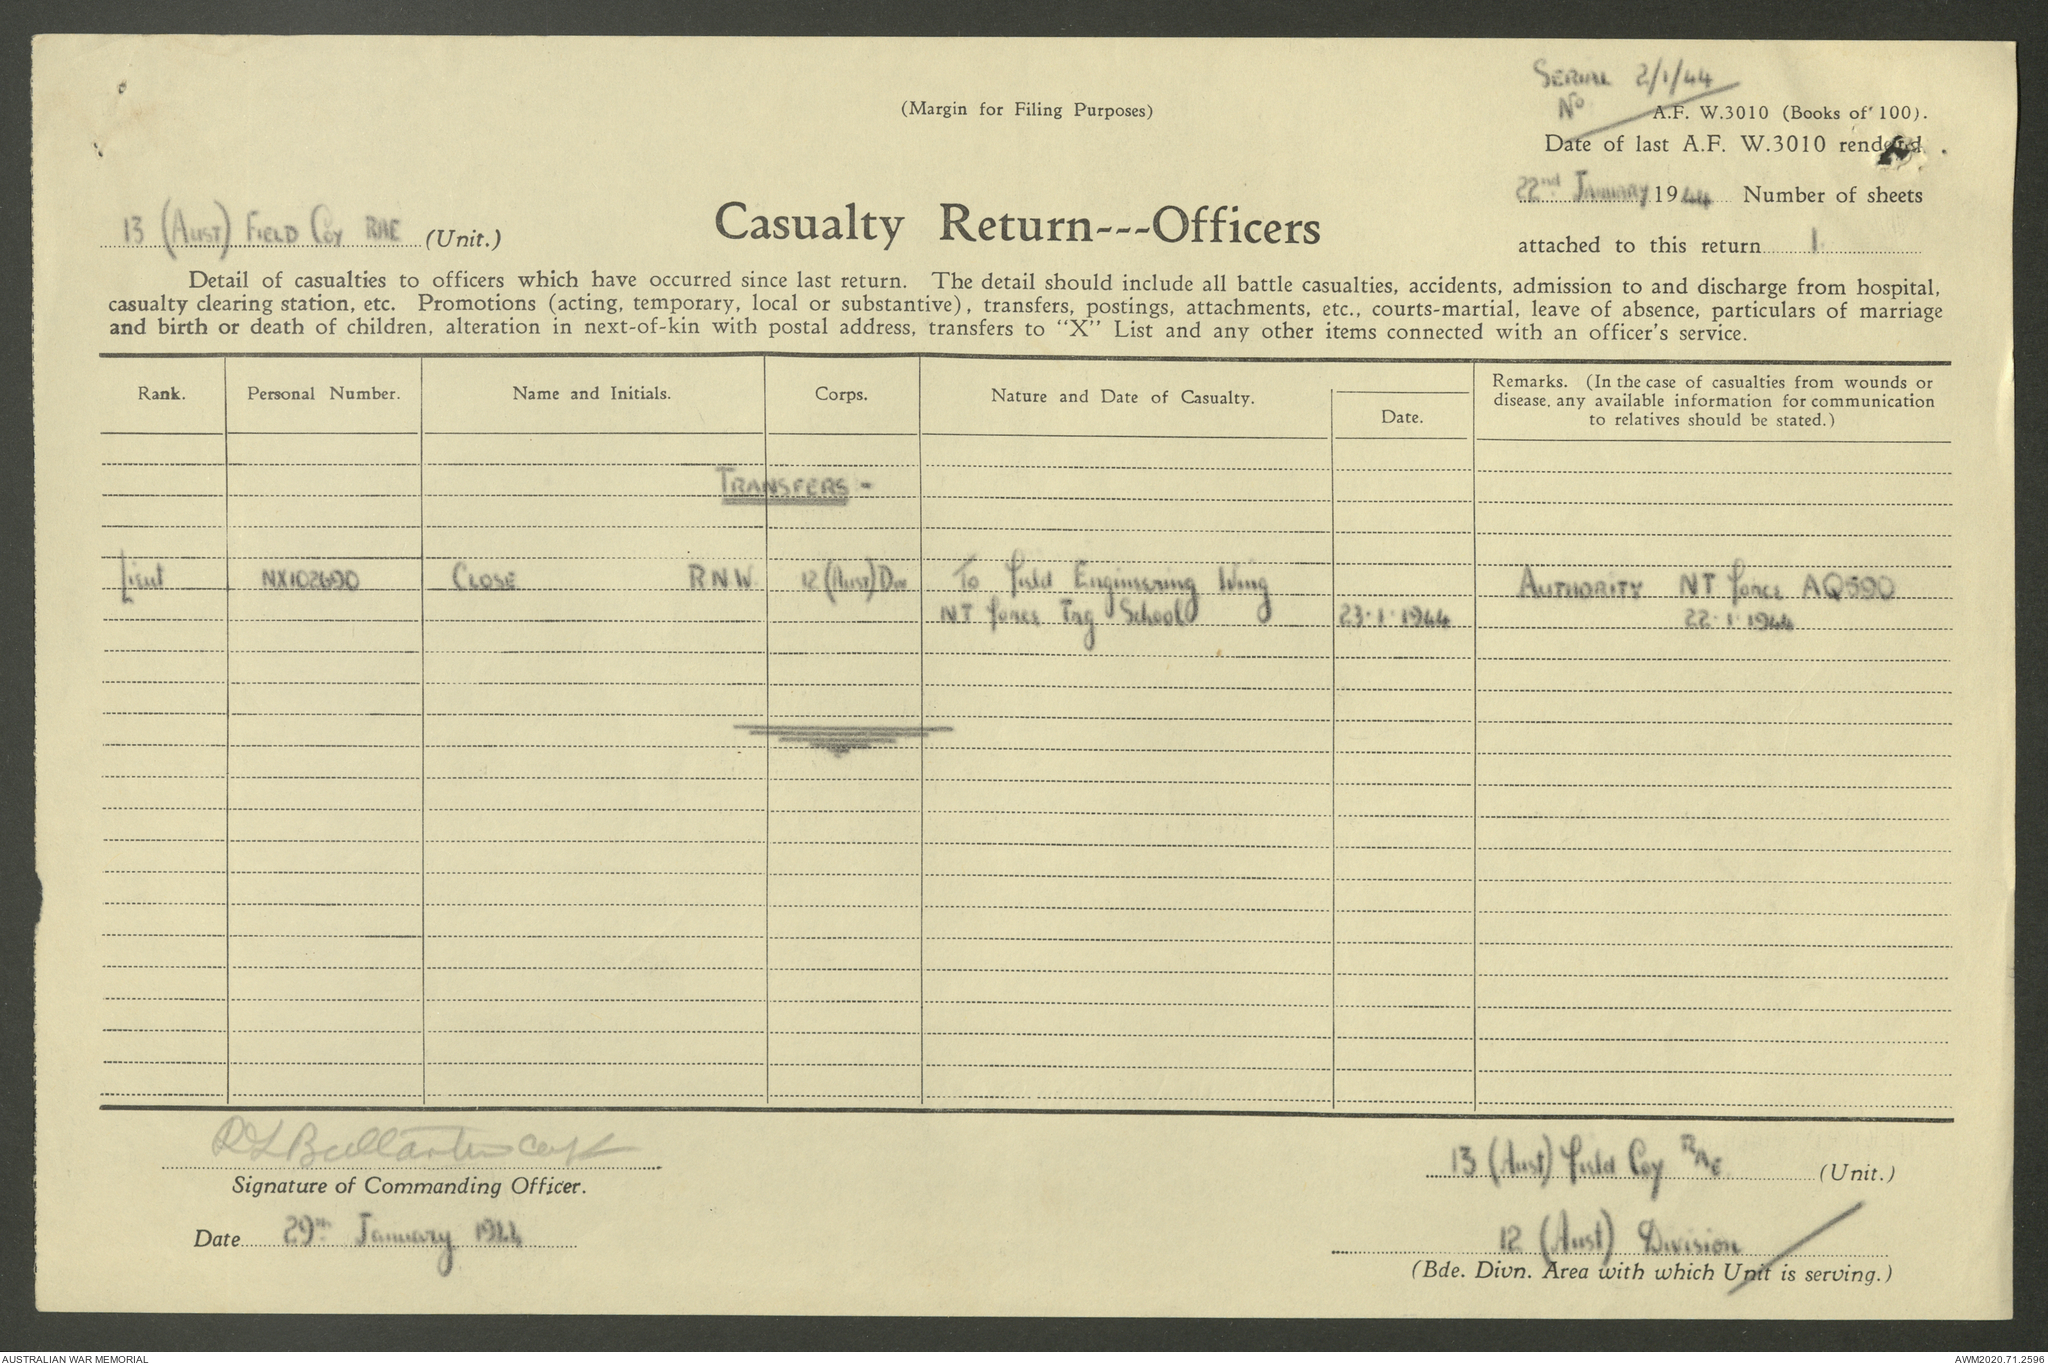 SERIAL 2/1/44
No
(Margin for Filing Purposes)
A.F. W.3010 (Books of 100).
Date of last A.F. W.3010 rendered
22nd January 1944 Number of sheets
attached to this return 1
13 (Aust) FIELD Coy RAE (Unit.)
Casualty Return---Officers
Detail of casualties to officers which have occurred since last return. The detail should include all battle casualties, accidents, admission to and discharge from hospital,
casualty clearing station, etc. Promotions (acting, temporary, local or substantive), transfers, postings, attachments, etc., courts-martial, leave of absence, particulars of marriage
and birth or death of children, alteration in next-of-kin with postal address, transfers to "X" List and any other items connected with an officer's service.
Rank. Personal Number. Name and Initials. Corps. Nature and Date of Casualty. Date. Remarks. (In the case of casualties from wounds or
disease, any available information for communication
to relatives should be stated.)
TRANSFERS -
Lieut NX102690 CLOSE R.N.W. 12 (Aust) Div To Field Engineering Wing AUTHORITY NT Force AQ590
NT Force Trg School 23.1.1944 22.1.1944
Signature of Commanding Officer.
Date 29th January 1944
13 (Aust) Field Coy RAE (Unit.)
12 (Aust) Division
(Bde. Divn. Area with which Unit is serving.)
AUSTRALIAN WAR MEMORIAL
AWM2020.71.2596